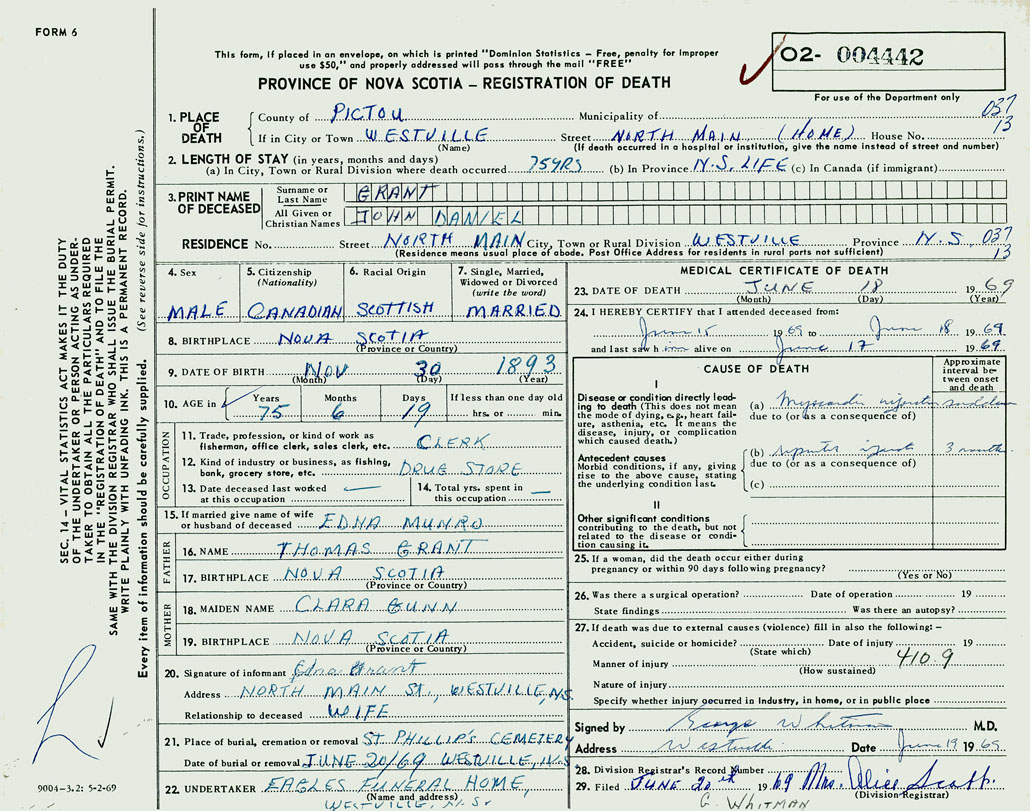 FORM 6
This form, if placed in an envelope, on which is printed "Dominion Statistics – Free, penalty for improper
use $50," and properly addressed will pass through the mail "FREE"
O2- 004442
For use of the Department only
PROVINCE OF NOVA SCOTIA – REGISTRATION OF DEATH
SEC. 14 – VITAL STATISTICS ACT MAKES IT THE DUTY
OF THE UNDERTAKER OR PERSON ACTING AS UNDER-
TAKER TO OBTAIN ALL THE PARTICULARS REQUIRED
IN THE "REGISTRATION OF DEATH" AND TO FILE THE
SAME WITH THE DIVISION REGISTRAR WHO SHALL ISSUE THE BURIAL PERMIT.
WRITE PLAINLY WITH UNFADING INK. THIS IS A PERMANENT RECORD.
Every item of information should be carefully supplied. (See reverse side for instructions.)
1. PLACE OF DEATH
County of PICTOU Municipality of 037
If in City or Town WESTVILLE Street NORTH MAIN (HOME) House No. 13
(Name) (If death occurred in a hospital or institution, give the name instead of street and number)
2. LENGTH OF STAY (in years, months and days)
(a) In City, Town or Rural Division where death occurred 75YRS (b) In Province N.S. LIFE (c) In Canada (if immigrant)
3. PRINT NAME OF DECEASED
Surname or Last Name GRANT
All Given or Christian Names JOHN DANIEL
RESIDENCE No. Street NORTH MAIN City, Town or Rural Division WESTVILLE Province N.S. 037
(Residence means usual place of abode. Post Office Address for residents in rural parts not sufficient) 13
4. Sex
MALE
5. Citizenship (Nationality)
CANADIAN
6. Racial Origin
SCOTTISH
7. Single, Married, Widowed or Divorced (write the word)
MARRIED
8. BIRTHPLACE NOVA SCOTIA
(Province or Country)
9. DATE OF BIRTH NOV 30 1893
(Month) (Day) (Year)
10. AGE in Years Months Days If less than one day old
75 6 19 hrs. or min.
OCCUPATION
11. Trade, profession, or kind of work as
fisherman, office clerk, sales clerk, etc. CLERK
12. Kind of industry or business, as fishing,
bank, grocery store, etc. DRUG STORE
13. Date deceased last worked
at this occupation
14. Total yrs. spent in
this occupation
15. If married give name of wife
or husband of deceased EDNA MUNRO
FATHER
16. NAME THOMAS GRANT
17. BIRTHPLACE NOVA SCOTIA
(Province or Country)
MOTHER
18. MAIDEN NAME CLARA GUNN
19. BIRTHPLACE NOVA SCOTIA
(Province or Country)
20. Signature of informant Edna Grant
Address NORTH MAIN ST., WESTVILLE, N.S.
Relationship to deceased WIFE
21. Place of burial, cremation or removal ST PHILLIP'S CEMETERY
Date of burial or removal JUNE 20/69 WESTVILLE, N.S.
22. UNDERTAKER EAGLES FUNERAL HOME,
(Name and address)
WESTVILLE, N.S.
9004–3.2: 5-2-69
MEDICAL CERTIFICATE OF DEATH
23. DATE OF DEATH JUNE 18 1969
(Month) (Day) (Year)
24. I HEREBY CERTIFY that I attended deceased from:
June 15 1969 to June 18 1969
and last saw him alive on June 17 1969.
CAUSE OF DEATH
Approximate interval between onset and death
I
Disease or condition directly lead-
ing to death (This does not mean
the mode of dying, e.g., heart fail-
ure, asthenia, etc. It means the
disease, injury, or complication
which caused death.)
(a) sudden
due to (or as a consequence of)
Antecedent causes
Morbid conditions, if any, giving
rise to the above cause, stating
the underlying condition last.
(b) 3 months
due to (or as a consequence of)
(c)
II
Other significant conditions
contributing to the death, but not
related to the disease or condi-
tion causing it.
25. If a woman, did the death occur either during
pregnancy or within 90 days following pregnancy?
(Yes or No)
26. Was there a surgical operation? Date of operation 19
State findings Was there an autopsy?
27. If death was due to external causes (violence) fill in also the following: –
Accident, suicide or homicide? Date of injury 19
(State which)
Manner of injury 410.9
(How sustained)
Nature of injury
Specify whether injury occurred in Industry, in home, or in public place
Signed by George Whitman M.D.
Address Westville Date June 19 1969
28. Division Registrar's Record Number
29. Filed JUNE 20th 1969 Mrs. Alice Scott
(Division Registrar)
G. WHITMAN